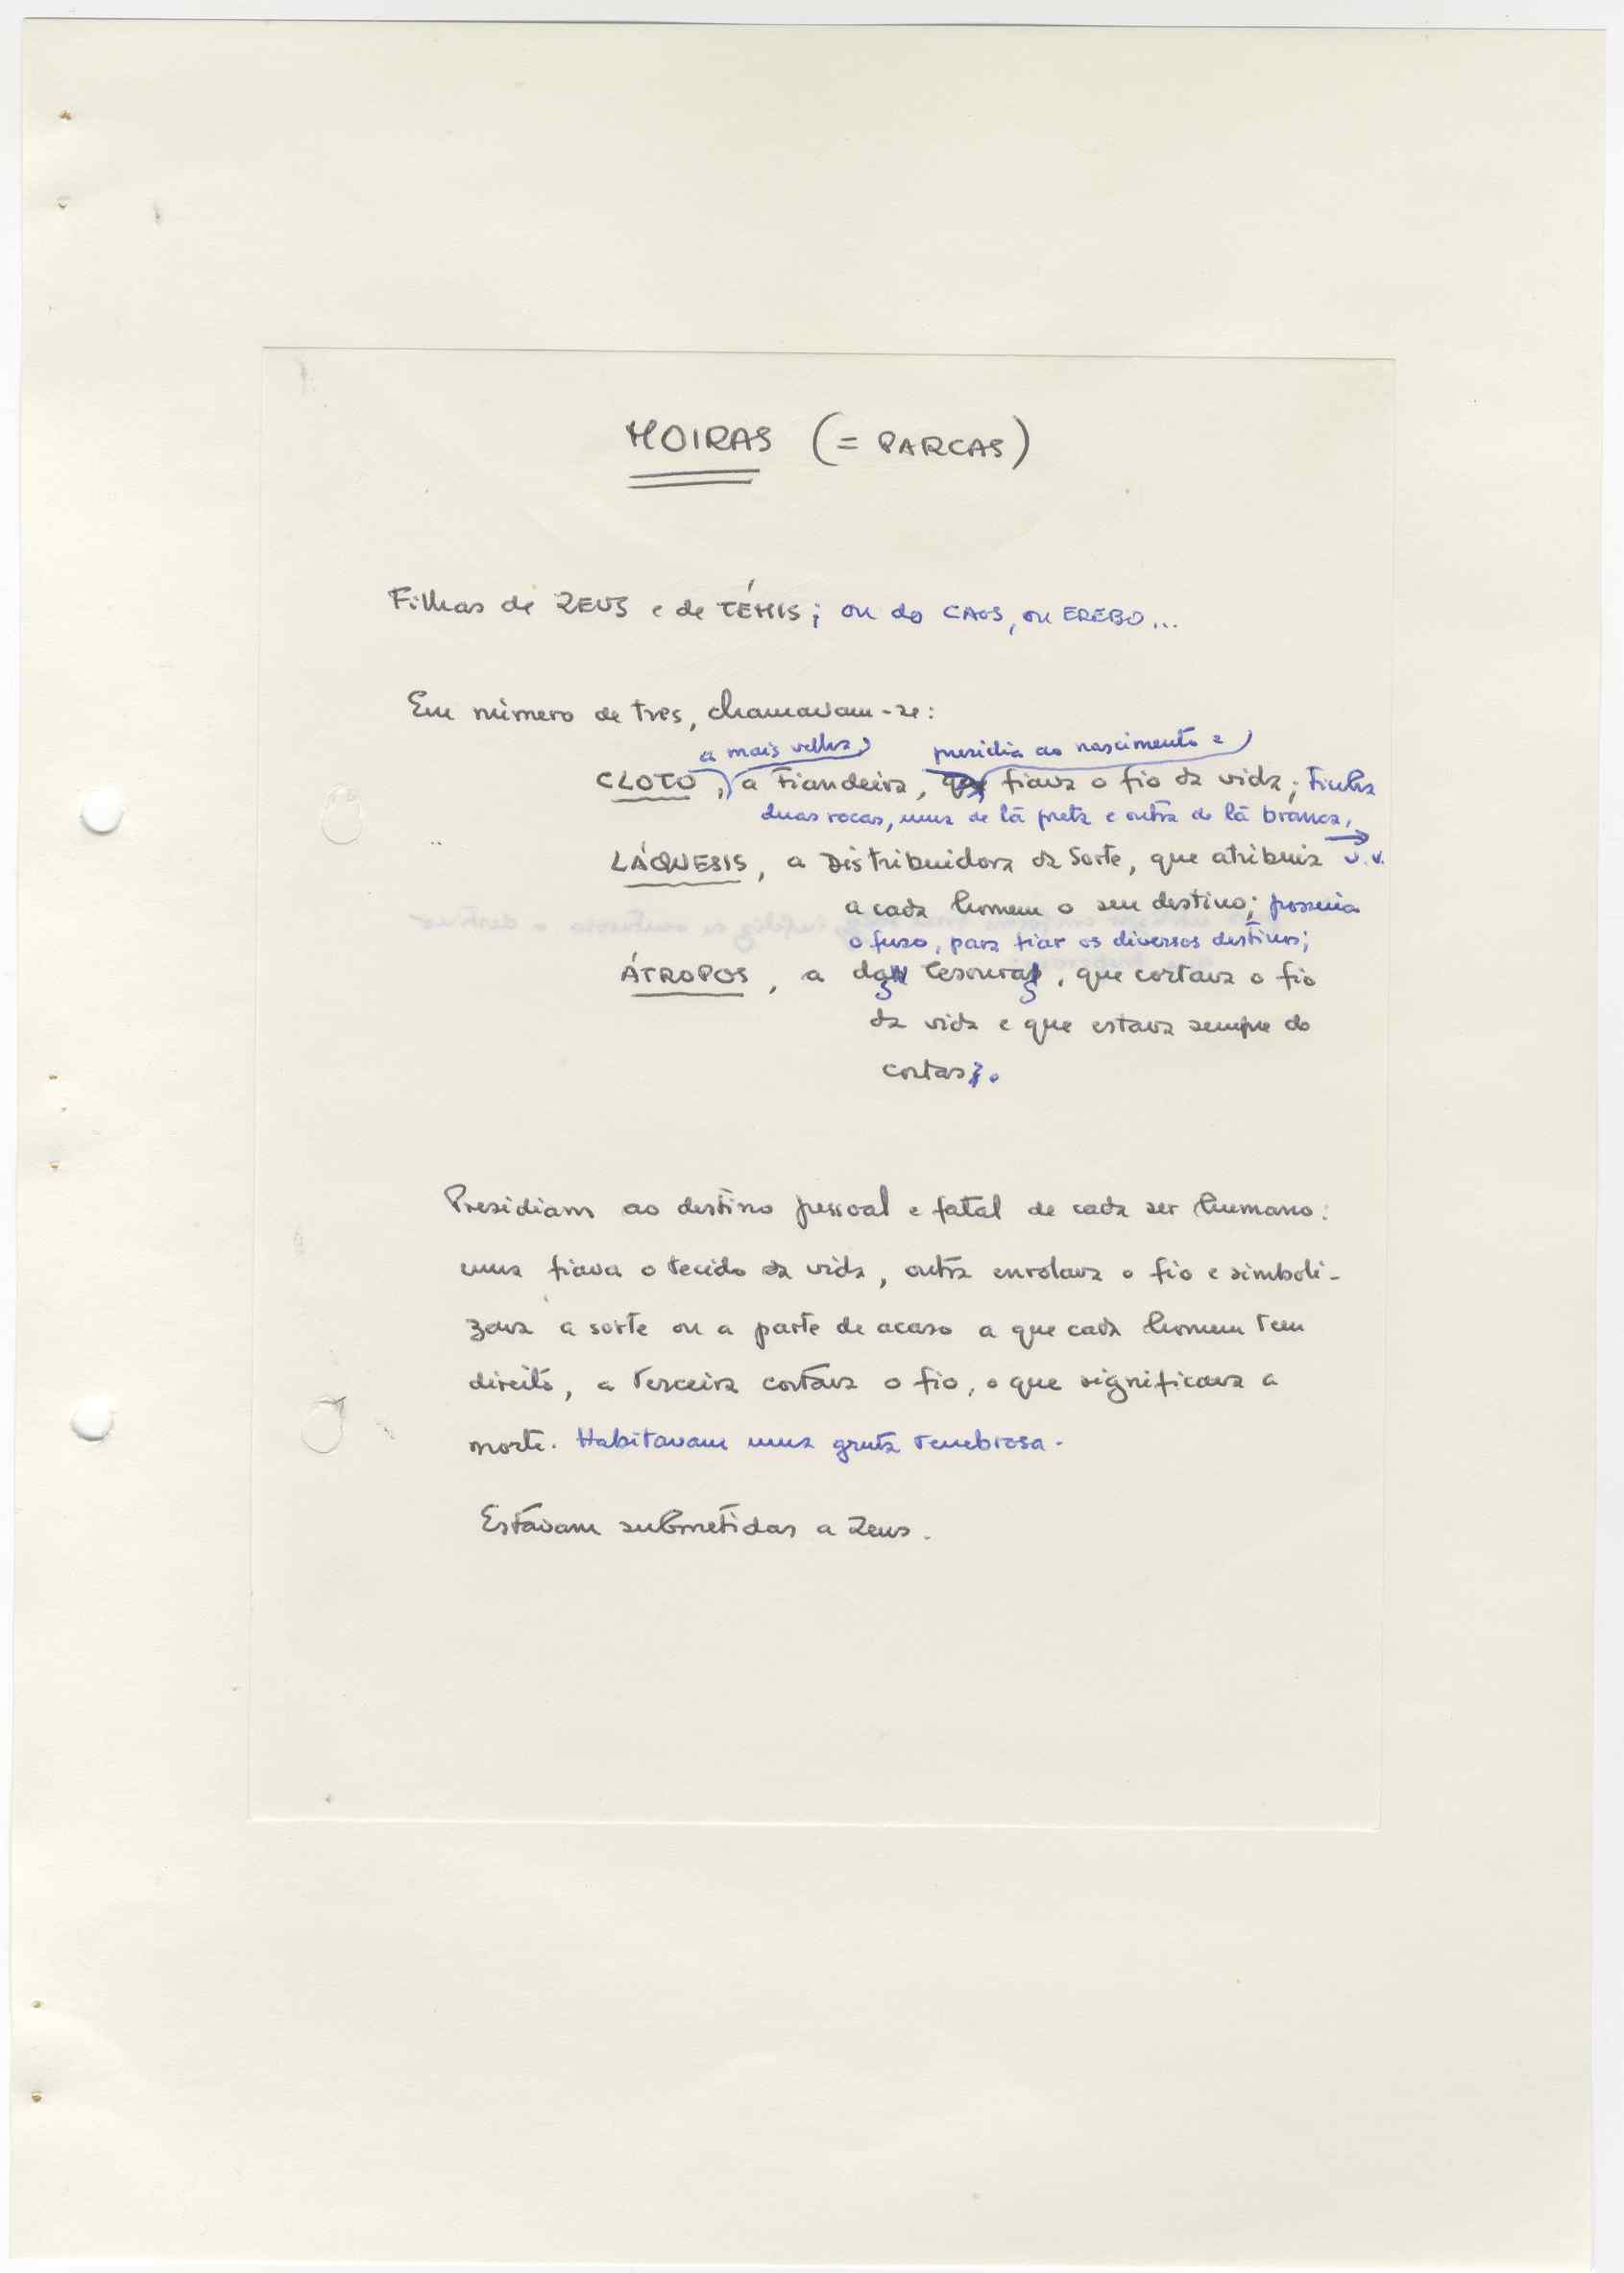 MOIRAS (= PARCAS)
Filhas de ZEUS e de TÉMIS; ou do CAOS, ou EREBO...
Em número de tres, chamavam-se:
a mais velha, presidia ao nascimento e
CLOTO, a Fiandeira, que fiava o fio da vida; tinha
duas rocas, uma de lã preta e outra de lã branca,
LÁQUESIS, a Distribuidora da Sorte, que atribuia v.v.
a cada homem o seu destino; possuia
o fuso, para fiar os diversos destinos;
ÁTROPOS, a das Tesouras, que cortava o fio
da vida e que estava sempre do
cortas.
Presidiam ao destino pessoal e fatal de cada ser humano:
uma fiava o tecido da vida, outra enrolava o fio e simboli-
zava a sorte ou a parte de acaso a que cada homem tem
direito, a terceira cortava o fio, o que significava a
morte. Habitavam uma gruta tenebrosa.
Estavam submetidas a Zeus.